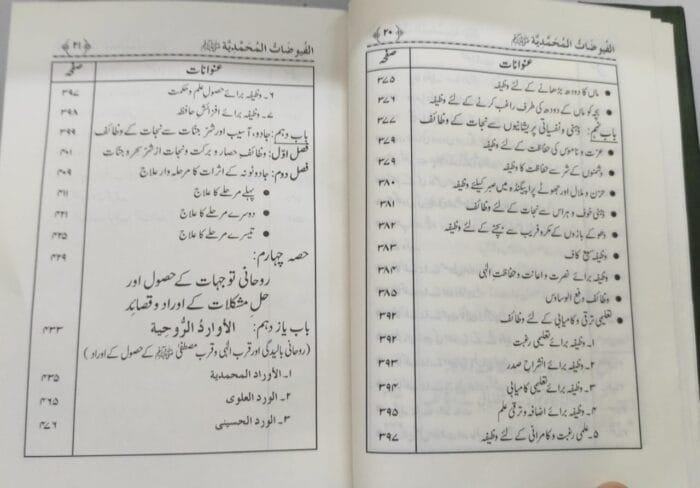 ﴿۲۰﴾ الفیوضات المحمدیۃ ﷺ
صفحہ عنوانات
• ماں کا دودھ بڑھانے کے لئے وظیفہ ۳۷۵
• بچہ کو ماں کے دودھ کی طرف راغب کرنے کے لئے وظیفہ ۳۷۶
باب نہم: ذہنی و نفسیاتی پریشانیوں سے نجات کے وظائف ۳۷۷
• عزت و ناموس کی حفاظت کے لئے وظیفہ ۳۷۹
• دشمنوں کے شر سے حفاظت کا وظیفہ ۳۷۹
• حزن و ملال اور جھوٹے پراپیگنڈہ میں صبر کیلئے وظیفہ ۳۸۰
• ذہنی خوف و ہراس سے نجات کے لئے وظیفہ ۳۸۱
• دھوکے بازوں کے مکر و فریب سے بچنے کے لئے وظیفہ ۳۸۲
• وظیفہ سبع کاف ۳۸۳
• وظیفہ برائے نصرت و اعانت و حفاظت الٰہی ۳۸۳
• وظائف دفع الوساوس ۳۸۵
• تعلیمی ترقی و کامیابی کے لئے وظائف ۳۹۲
۱۔ وظیفہ برائے تعلیمی رغبت ۳۹۲
۲۔ وظیفہ برائے انشراح صدر ۳۹۳
۳۔ وظیفہ برائے تعلیمی کامیابی ۳۹۴
۴۔ وظیفہ برائے اضافہ و ترقی علم ۳۹۵
۵۔ علمی رغبت و کامرانی کے لئے وظیفہ ۳۹۷
الفیوضات المحمدیۃ ﷺ ﴿۲۱﴾
عنوانات صفحہ
۶۔ وظیفہ برائے حصول علم و حکمت ۳۹۷
۷۔ وظیفہ برائے افزائش حافظہ ۳۹۸
باب دہم: جادو، آسیب اور شر جنات سے نجات کے وظائف ۳۹۹
فصل اوّل: وظائف حصار و برکت و نجات از شر سحر و جنات ۴۰۱
فصل دوم: جادو ٹونہ کے اثرات کا مرحلہ وار علاج ۴۰۹
• پہلے مرحلے کا علاج ۴۱۱
• دوسرے مرحلے کا علاج ۴۲۱
• تیسرے مرحلے کا علاج ۴۲۵
حصہ چہارم: ۴۲۹
روحانی توجہات کے حصول اور
حل مشکلات کے اوراد و قصائد
باب یاز دہم: الأوارد الرُّوحیة ۴۳۳
(روحانی بالیدگی اور قرب الٰہی و قرب مصطفیٰ ﷺ کے حصول کے اوراد)
۱۔ الأوراد المحمدیة ۴۳۵
۲۔ الورد العلوی ۴۶۵
۳۔ الورد الحسینی ۴۷۶